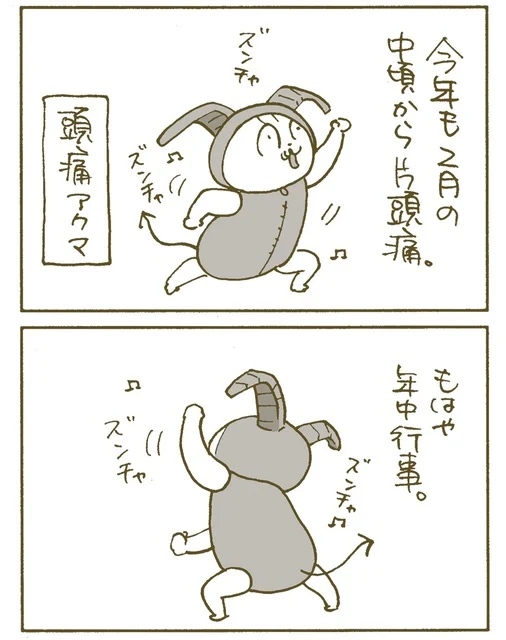 今年も2月の
中頃から片頭痛。
ズンチャ
ズンチャ
頭痛アクマ
もはや
年中行事。
ズンチャ
ズンチャ